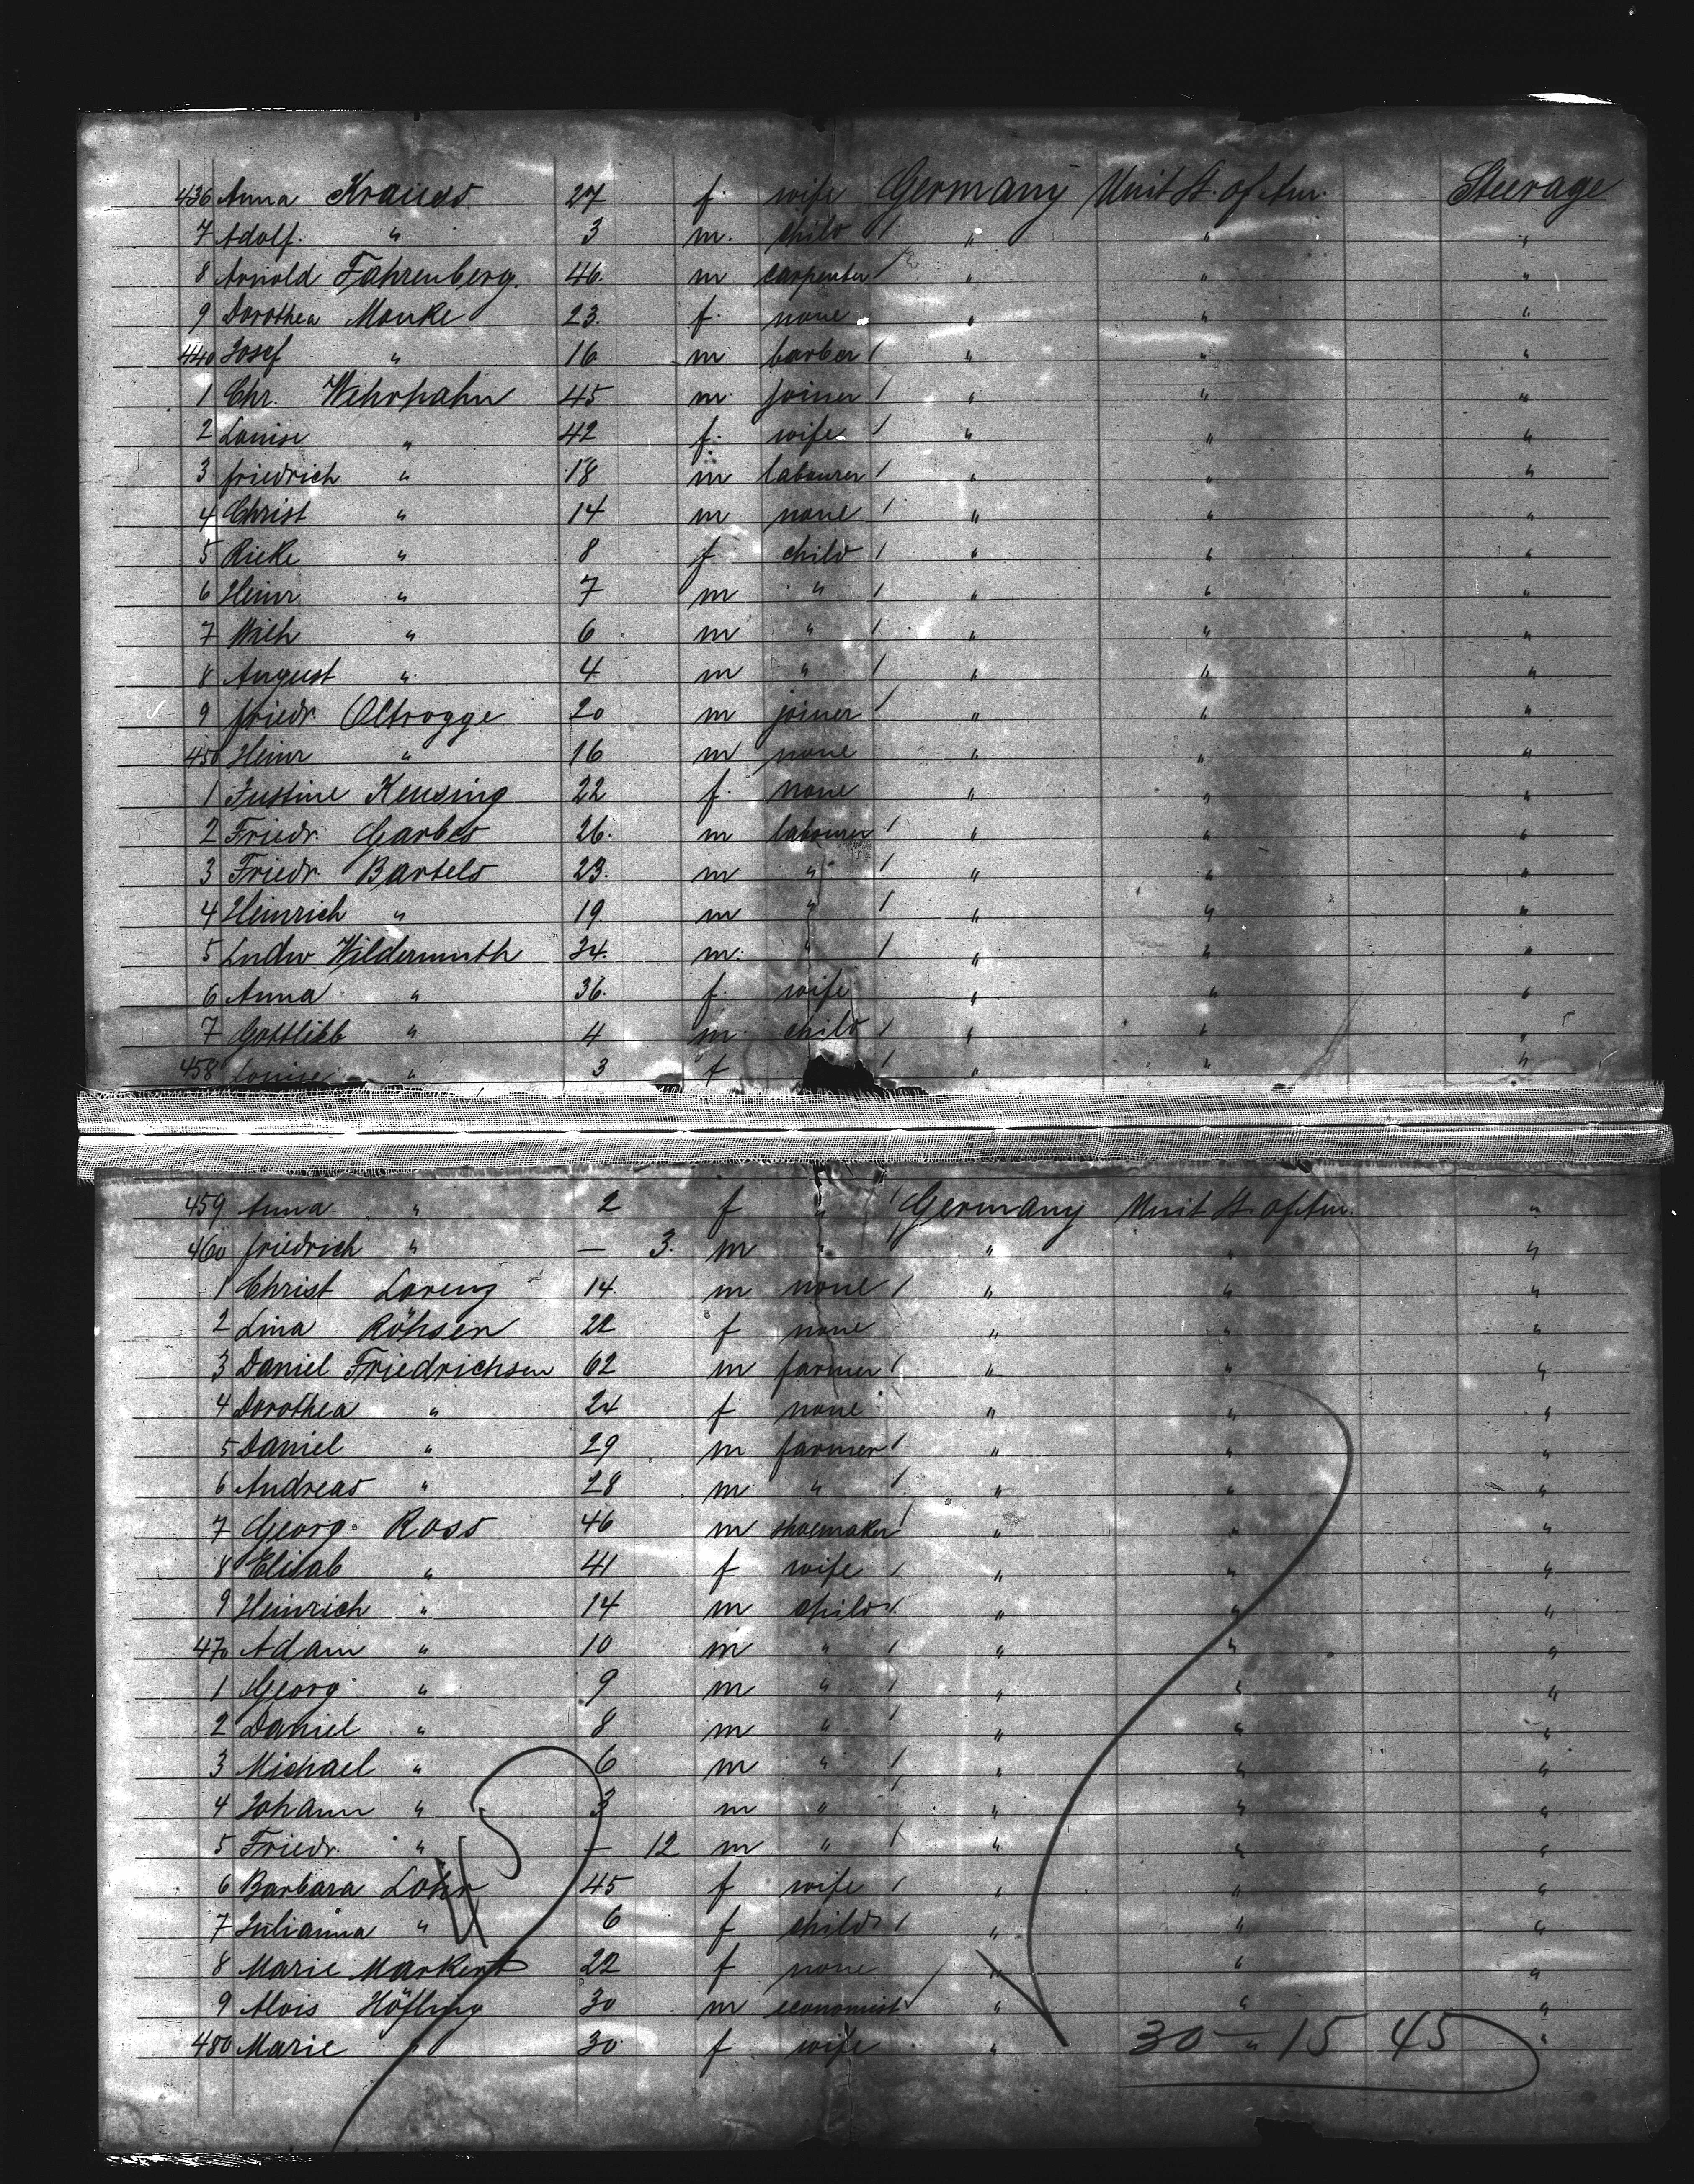 436 Anna Krauss 27 f. wife Germany Unit St. of Am. Steerage
7 Adolf. " 3 m. child / " " "
8 Arnold Fahrenberg. 46. m carpenter / " " "
9 Dorothea Manke 23. f. none " " "
440 Josef " 16 m barber / " " "
1 Chr. Wehrhahn 45 m. joiner / " " "
2 Louise " 42 f. wife / " " "
3 friedrich " 18 m labourer / " " "
4 Christ " 14 m none / " " "
5 Rieke " 8 f child / " " "
6 Heinr. " 7 m " / " " "
7 Wilh " 6 m " / " " "
8 August " 4 m " / " " "
9 friedr. Oltrogge 20 m joiner / " " "
450 Heinr " 16 m none " " "
1 Justine Kensing 22 f. none " " "
2 Friedr. Garbes 26. m labourer / " " "
3 Friedr. Bartels 23. m " / " " "
4 Heinrich " 19. m " / " " "
5 Ludw. Wildermuth 34. m. " / " " "
6 Anna " 36. f. wife " " "
7 Gottlieb " 4 m. child / " " "
458 Louise " 3 f / " " "
459 Anna " 2 f " / Germany Unit St. of Am. "
460 friedrich " — 3. m " " " "
1 Christ Lorenz 14. m none / " " "
2 Lina Röhsen 22 f none " " "
3 Daniel Friedrichsen 62 m farmer / " " "
4 Dorothea " 24 f none " " "
5 Daniel " 29 m farmer / " " "
6 Andreas " 28 m " / " " "
7 Georg. Ross 46 m shoemaker / " " "
8 Elisab " 41 f wife / " " "
9 Heinrich " 14 m child / " " "
470 Adam " 10 m " / " " "
1 Georg " 9 m " / " " "
2 Daniel " 8 m " / " " "
3 Michael " 6 m " / " " "
4 Johann " 3 m " / " " "
5 Friedr. " — 12 m " / " " "
6 Barbara Löhr 45 f wife / " " "
7 Julianna " 6 f child / " " "
8 Marie Markert 22 f none " " "
9 Alois Höfling 30 m economist / " " "
480 Marie " 30 f wife " " "
30 — 15 45
45